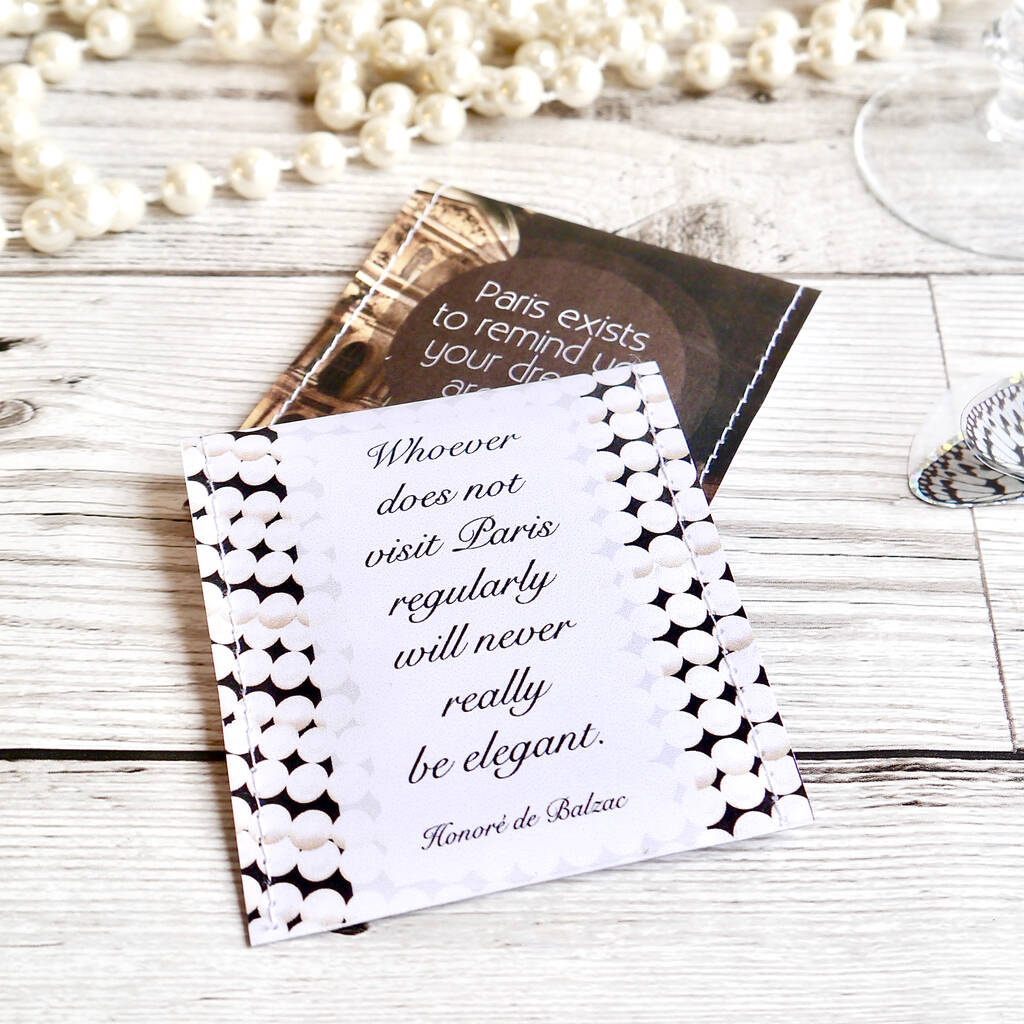 Paris exists
to remind
your
Whoever
does not
visit Paris
regularly
will never
really
be elegant.
Honoré de Balzac